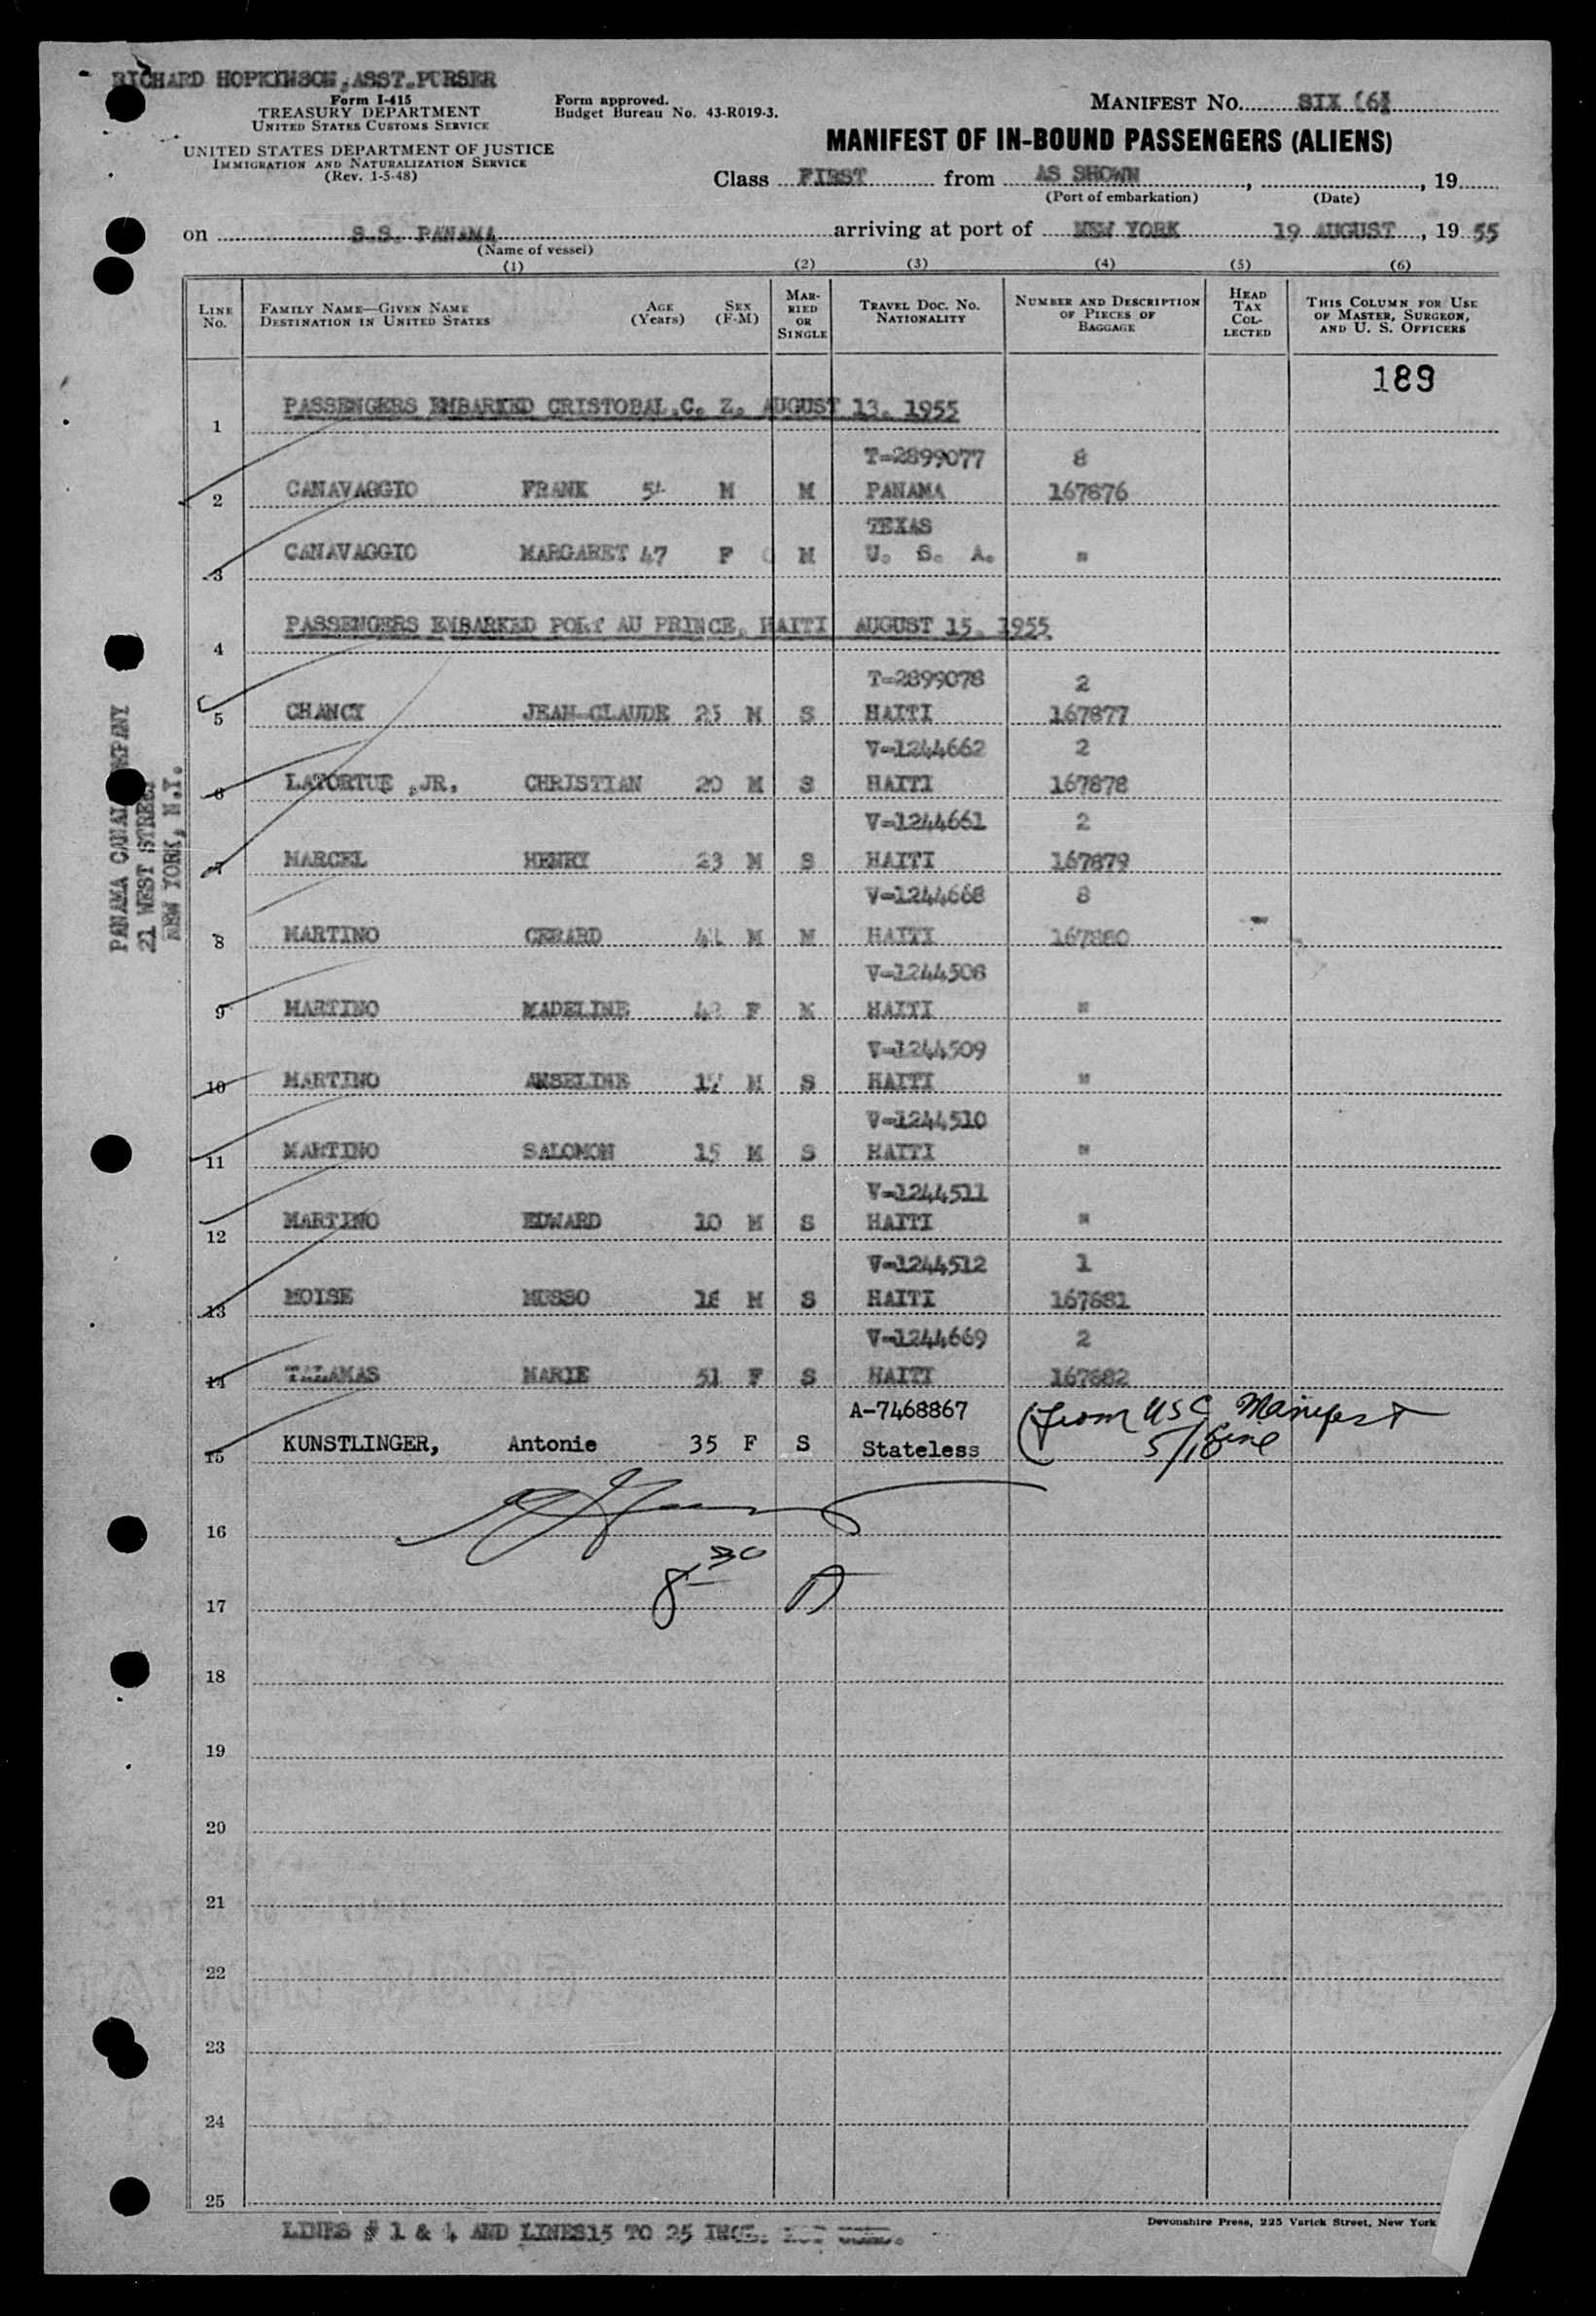 RICHARD HOPKINSON, ASST. PURSER
Form I-415
TREASURY DEPARTMENT
UNITED STATES CUSTOMS SERVICE
UNITED STATES DEPARTMENT OF JUSTICE
IMMIGRATION AND NATURALIZATION SERVICE
(Rev. 1-5-48)
Form approved.
Budget Bureau No. 43-R019-3.
MANIFEST NO. SIX (6)
MANIFEST OF IN-BOUND PASSENGERS (ALIENS)
Class FIRST from AS SHOWN, , 19
(Port of embarkation) (Date)
on S.S. PANAMA arriving at port of NEW YORK 19 AUGUST, 1955
(Name of vessel)
(1) (2) (3) (4) (5) (6)
LINE No. FAMILY NAME—GIVEN NAME DESTINATION IN UNITED STATES AGE (Years) SEX (F-M) MARRIED OR SINGLE TRAVEL DOC. NO. NATIONALITY NUMBER AND DESCRIPTION OF PIECES OF BAGGAGE HEAD TAX COLLECTED THIS COLUMN FOR USE OF MASTER, SURGEON, AND U. S. OFFICERS
189
1 PASSENGERS EMBARKED CRISTOBAL,C. Z. AUGUST 13, 1955
T-2899077 8
2 CANAVAGGIO FRANK M M PANAMA 167876
TEXAS
3 CANAVAGGIO MARGARET 47 F M U. S. A. "
4 PASSENGERS EMBARKED PORT AU PRINCE, HAITI AUGUST 15, 1955
T-2899078 2
5 CHANCY JEAN-CLAUDE 25 M S HAITI 167877
V-1244662 2
6 LATORTUE ,JR. CHRISTIAN 20 M S HAITI 167878
V-1244661 2
7 MARCEL HENRY 23 M S HAITI 167879
V-1244668 8
8 MARTINO GERARD M M HAITI 167880
V-1244508
9 MARTINO MADELINE F M HAITI "
V-1244509
10 MARTINO ANSELINE M S HAITI "
V-1244510
11 MARTINO SALOMON 15 M S HAITI "
V-1244511
12 MARTINO EDWARD 10 M S HAITI "
V-1244512 1
13 MOISE MUSSO M S HAITI 167881
V-1244669 2
14 TALAMAS MARIE 51 F S HAITI 167882
A-7468867 (from USC Manifest
15 KUNSTLINGER, Antonie 35 F S Stateless 5/1 line
16
8 30 A
17
18
19
20
21
22
23
24
25
LINES # 1 & 4 AND LINES15 TO 25 INCL. NOT USED.
Devonshire Press, 225 Varick Street, New York
PANAMA CANAL COMPANY
21 WEST STREET
NEW YORK, N.Y.